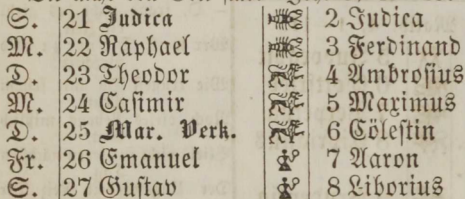 S. 21 Judica 2 Judica
M. 22 Raphael 3 Ferdinand
D. 23 Theodor 4 Ambroſius
M. 24 Caſimir 5 Maximus
D. 25 Mar. Verk. 6 Cöleſtin
Fr. 26 Emanuel 7 Aaron
S. 27 Guſtav 8 Liborius